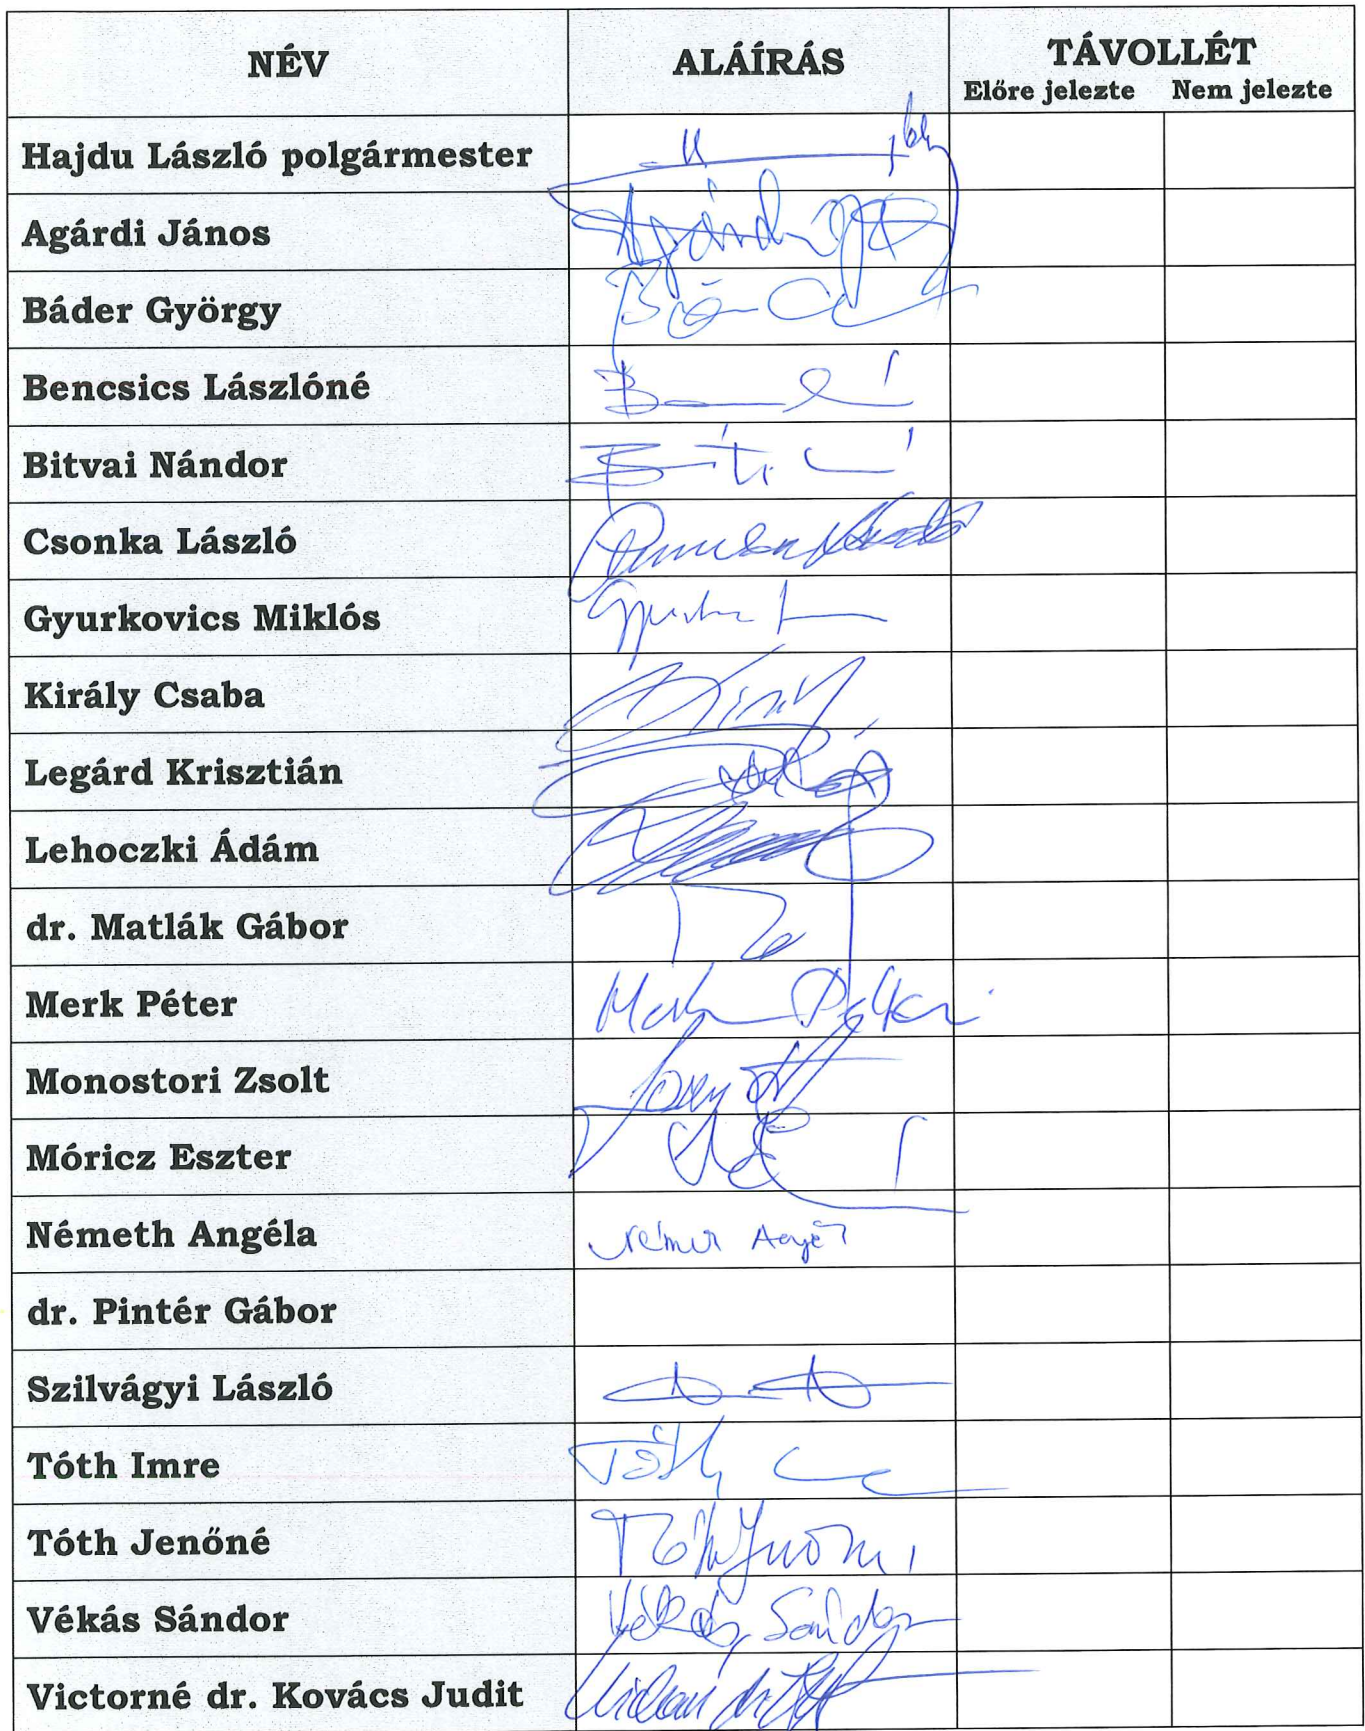 NÉV ALÁÍRÁS TÁVOLLÉT
Előre jelezte Nem jelezte
Hajdu László polgármester
Agárdi János Agárdi
Báder György
Bencsics Lászlóné
Bitvai Nándor
Csonka László
Gyurkovics Miklós
Király Csaba Király
Legárd Krisztián
Lehoczki Ádám
dr. Matlák Gábor
Merk Péter Merk
Monostori Zsolt
Móricz Eszter
Németh Angéla Németh Angéla
dr. Pintér Gábor
Szilvágyi László
Tóth Imre Tóth
Tóth Jenőné Tóth Jenőné
Vékás Sándor Vékás Sándor
Victorné dr. Kovács Judit